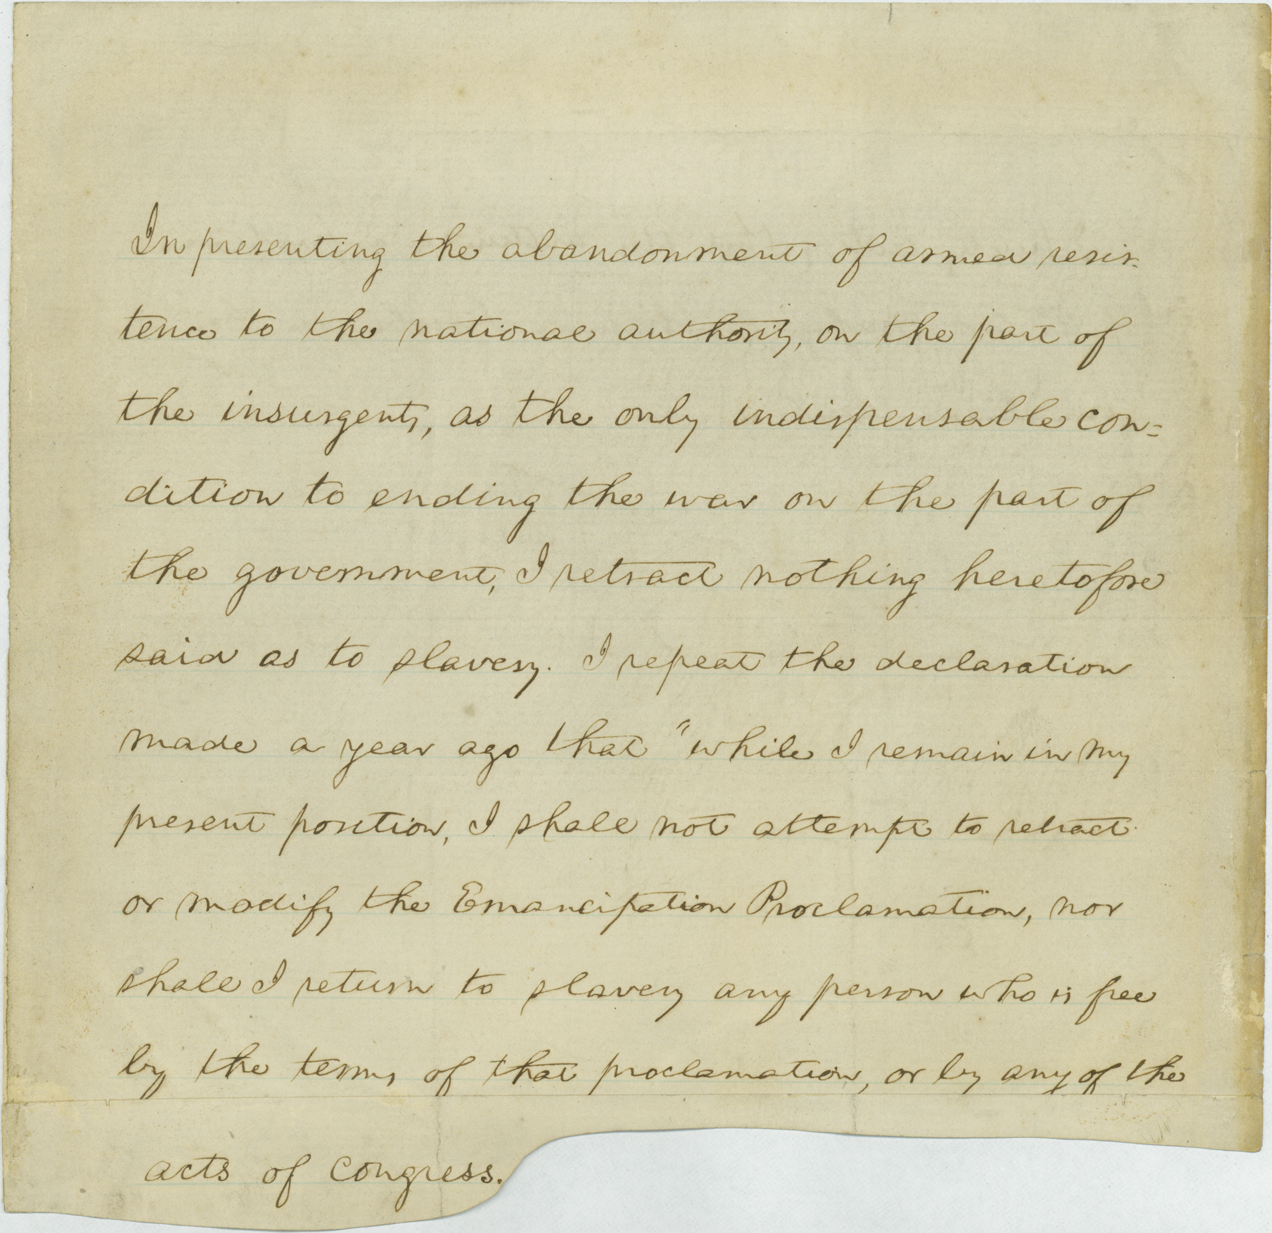 In presenting the abandonment of armed resis-
tence to the national authority, on the part of
the insurgents, as the only indispensable con=
dition to ending the war on the part of
the government, I retract nothing heretofore
said as to slavery. I repeat the declaration
made a year ago that "while I remain in my
present position, I shall not attempt to retract
or modify the Emancipation Proclamation, nor
shall I return to slavery any person who is free
by the terms of that proclamation, or by any of the
acts of Congress.